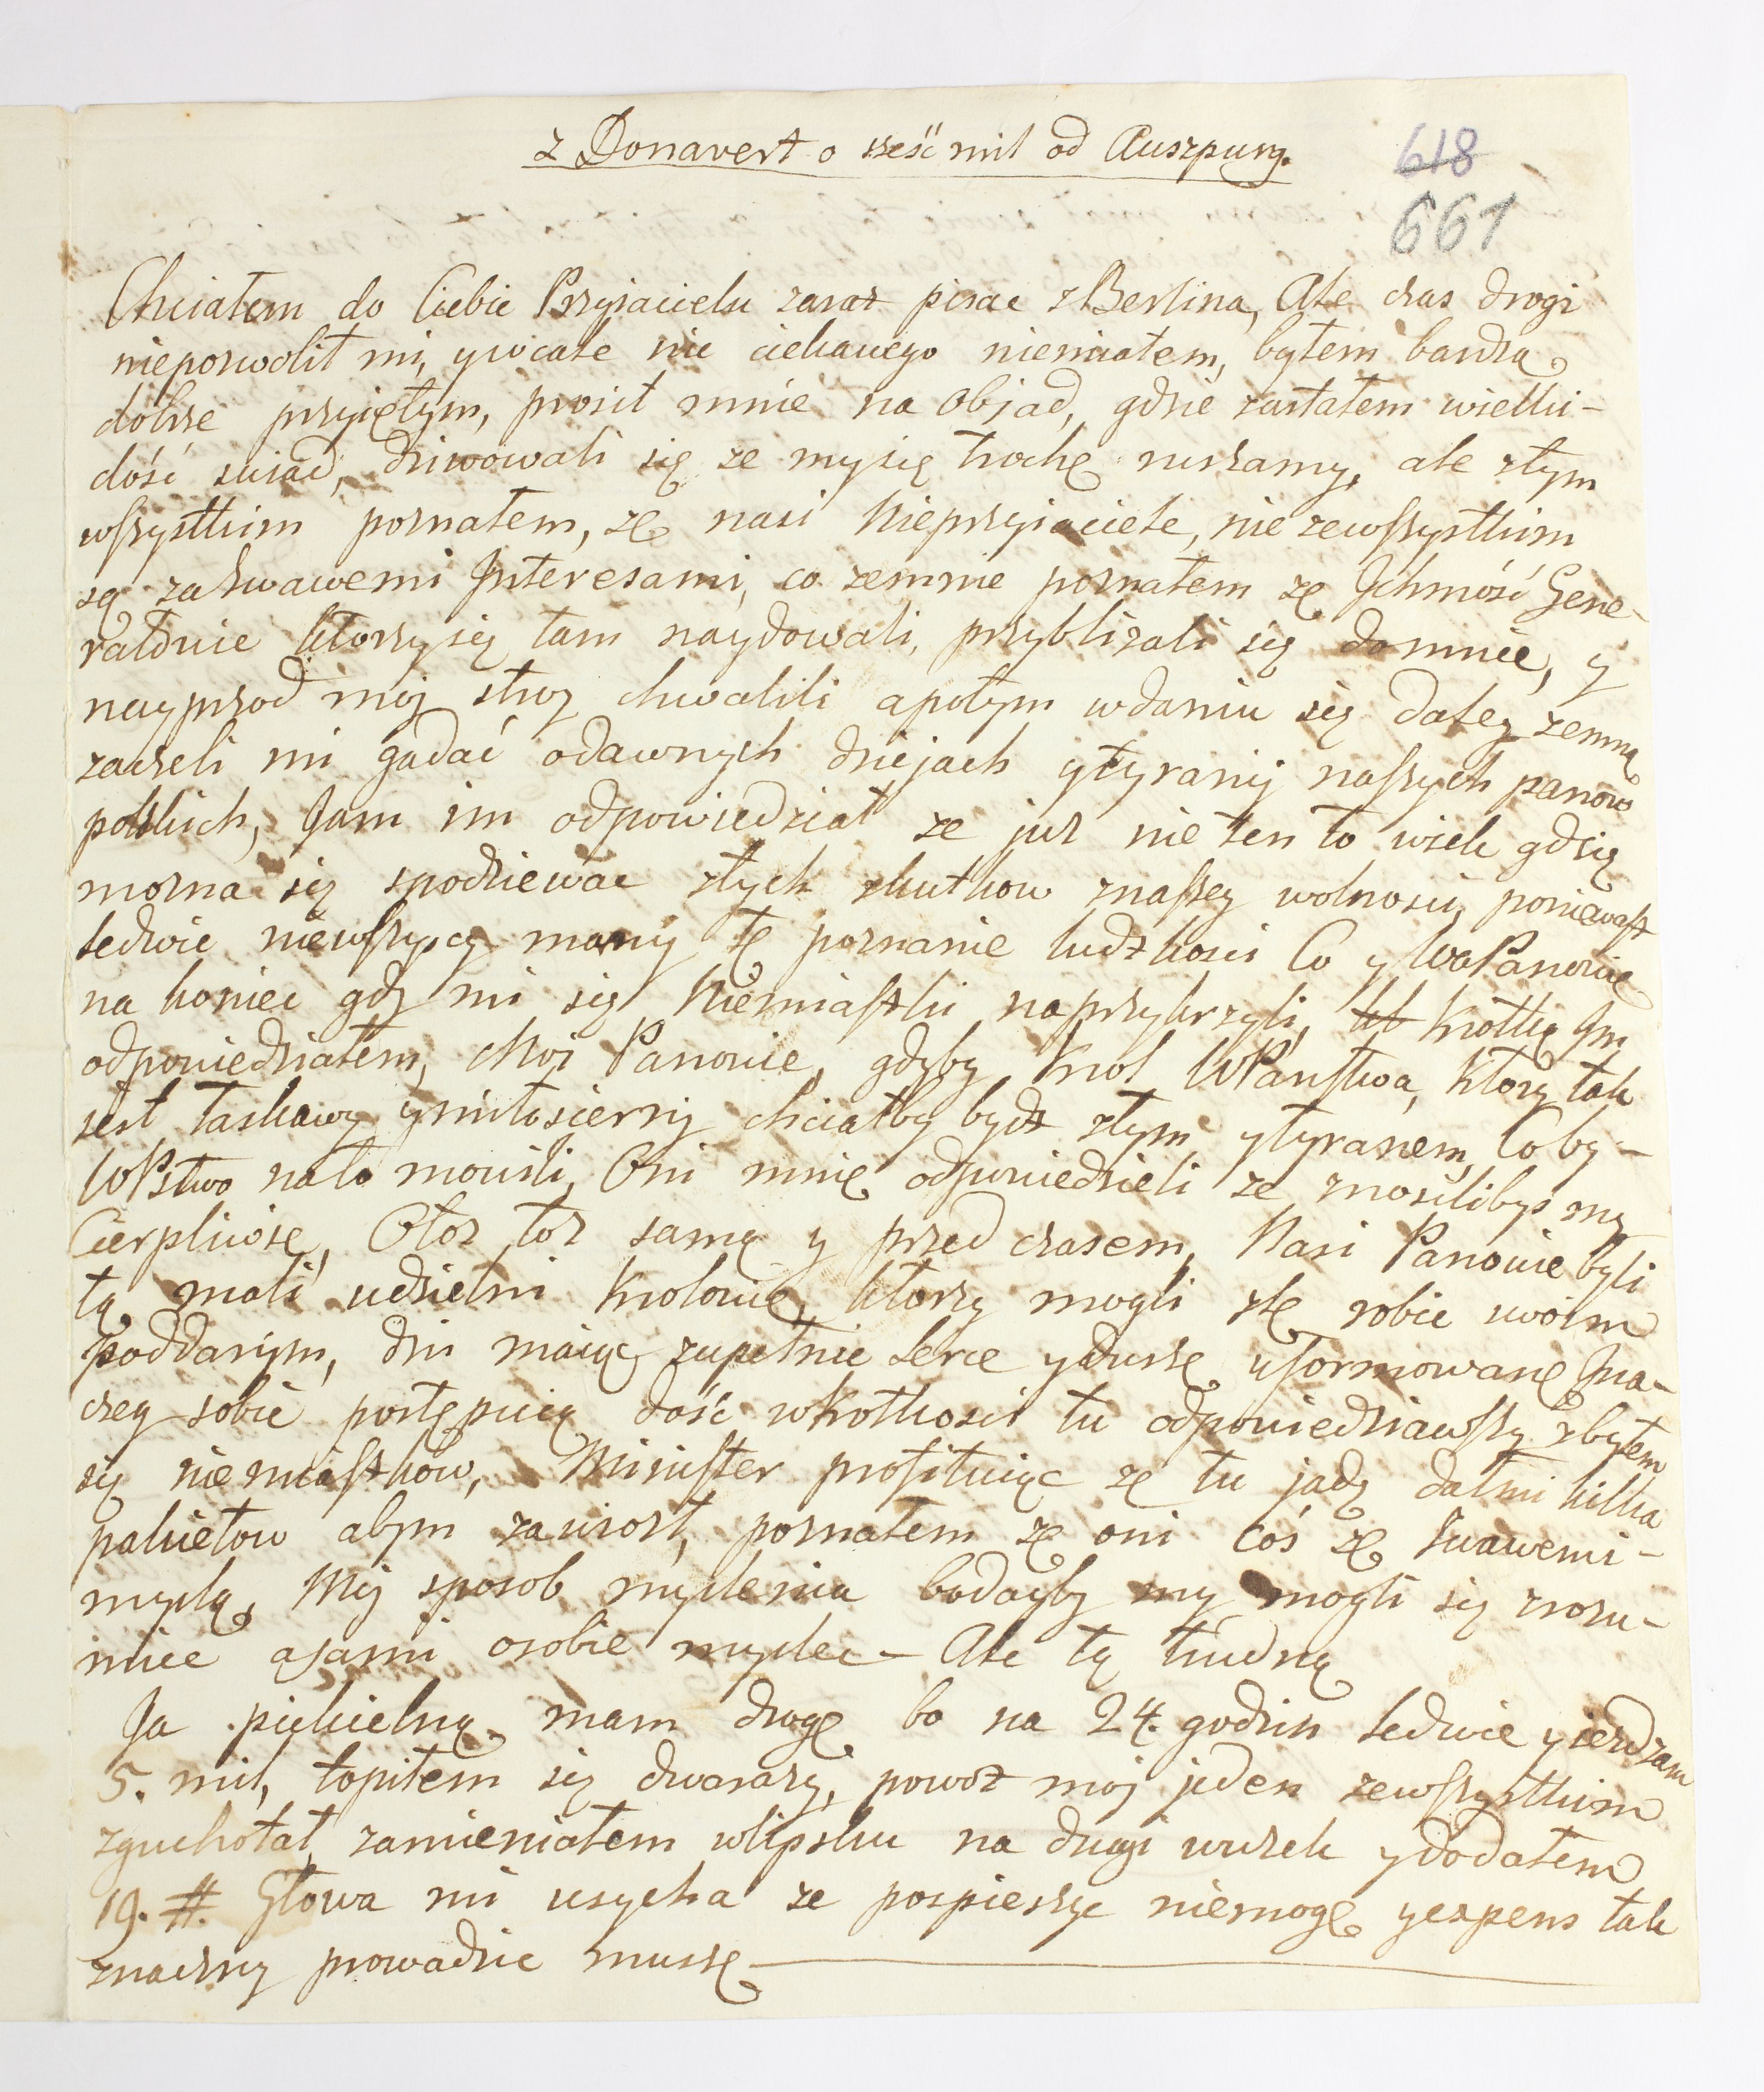 z Donavert o sześć mil od Auszpurg.
618
661
Chciałem do Ciebie Przyjacielu zaraz pisac z Berlina, Ale czas drogi
niepozwolił mi, y wcale nic ciekawego niemiałem, byłem bardzą
dobrze przyiętym, prosił mnie na Objad, gdzie zastałem wielki-
dość sciad, dziwowali się ze mysię trochę ruszamy, ale ztym
wszystkim poznałem, zę nasi Nieprzyjaciele, nie zewszystkim
są zatrwawemi Interesami, co zemnie poznałem zę Ichmość Gene-
rałowie ktorzysię tam naydowali, przyblizali się domnie, y
nayprzod moj stroj chwalili apotym wdaniu się daley zemną
zaczeli mi gadać odawnych dziejach ytyranij naszych panow
polskich, Jam im odpowiedział ze juz nie ten to wiek gdzię
mozna się spodziewac złych skutkow znaszey wolnosci, poniewasz
ledwie niewszyscy mamy tę poznanie ludzkosci Co y WaPanowie
na koniec gdy mi się Niemiaszki naprzykrzyli, krotkę Im
odpowiedziałem, Moi Panowie, gdyby Krol WPaństwa, ktory tak
jest łaskawy ymiłosierny chciałby bydz złym ytyranem, Coby-
WPstwo nato mowili, Oni mnię odpowiedzieli ze znosilibys my
Cierpliwise, Otoz toz samę y przed czasem, Nasi Panowie byli
tę mali udzielni Krolowię, ktorzy mogli złę robic swoim
poddanym, dzis maiąc zupełnie serce yduszę uformowanę Ina-
czey sobie postępuią dość wkrotkosci tu odpowiedziawszy zbyłem
się niemiaszkow, Minister profituiąc zę tu jadę dałmi kilka
pakietow abym zawiozł, poznałem zę oni coś zę Szwawemi-
myslą, Mij sposob myslenia bodayby my mogli się zrozu-
miec asami osobie myslec - Ale tę trudnę
Ja piekielną mam drogę bo na 24. godzin ledwie yiezdzam
5. mil, topiłem się dwarazy, powoz moj jeden zewszystkim
zgruchotał, zamieniałem wlipsku na drugi wozek ydodałem
19. #. Głowa mi usycha ze pospieszyc niemogę yexpens tak
znaczny prowadzic muszę